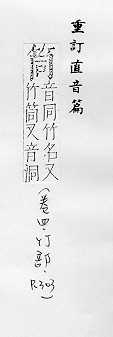 重訂直音篇
筒 音同竹名又
竹筒又音洞
(卷四·竹部·P.303)